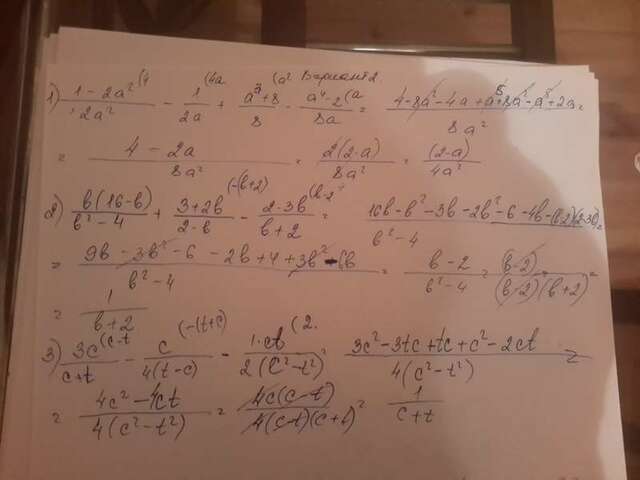 Вариант 2.
1) (1 - 2a²)/(2a²) - 1/(2a) + (a³+8)/8 - (a⁴-2)/(8a) = (4-8a²-4a+a⁵+8a²-a⁵+2a)/(8a²) =
= (4 - 2a)/(8a²) = 2(2-a)/(8a²) = (2-a)/(4a²)
2) b(16-b)/(b²-4) + (3+2b)/(2-b) - (2-3b)/(b+2) = (16b-b²-3b-2b²-6-4b-(b-2)(2-3b))/(b²-4) =
= (9b-3b²-6-2b+4+3b²-6b)/(b²-4) = (b-2)/(b²-4) = (b-2)/((b-2)(b+2)) =
= 1/(b+2)
3) 3c/(c+t) - c/(4(t-c)) - 1·ct/(2(c²-t²)) = (3c²-3tc+tc+c²-2ct)/(4(c²-t²)) =
= (4c²-4ct)/(4(c²-t²)) = 4c(c-t)/(4(c-t)(c+t)) = 1/(c+t)